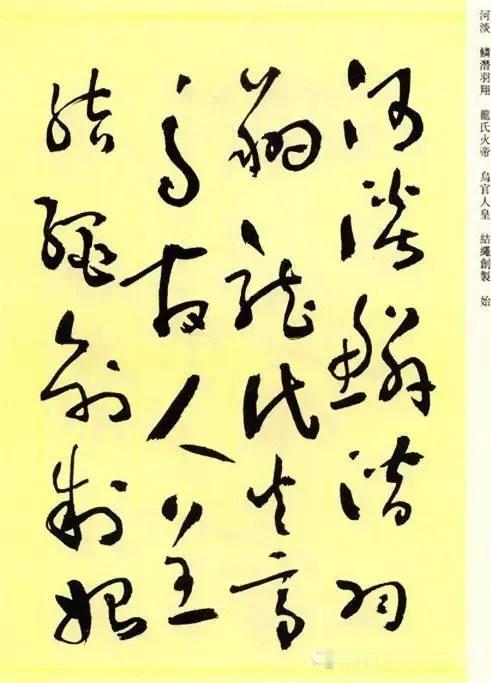 河淡 鱗潛羽翔 龍氏火帝 鳥官人皇 結繩創製 始
河淡鱗潛羽
翔龍氏火帝
鳥官人皇
結繩創制始